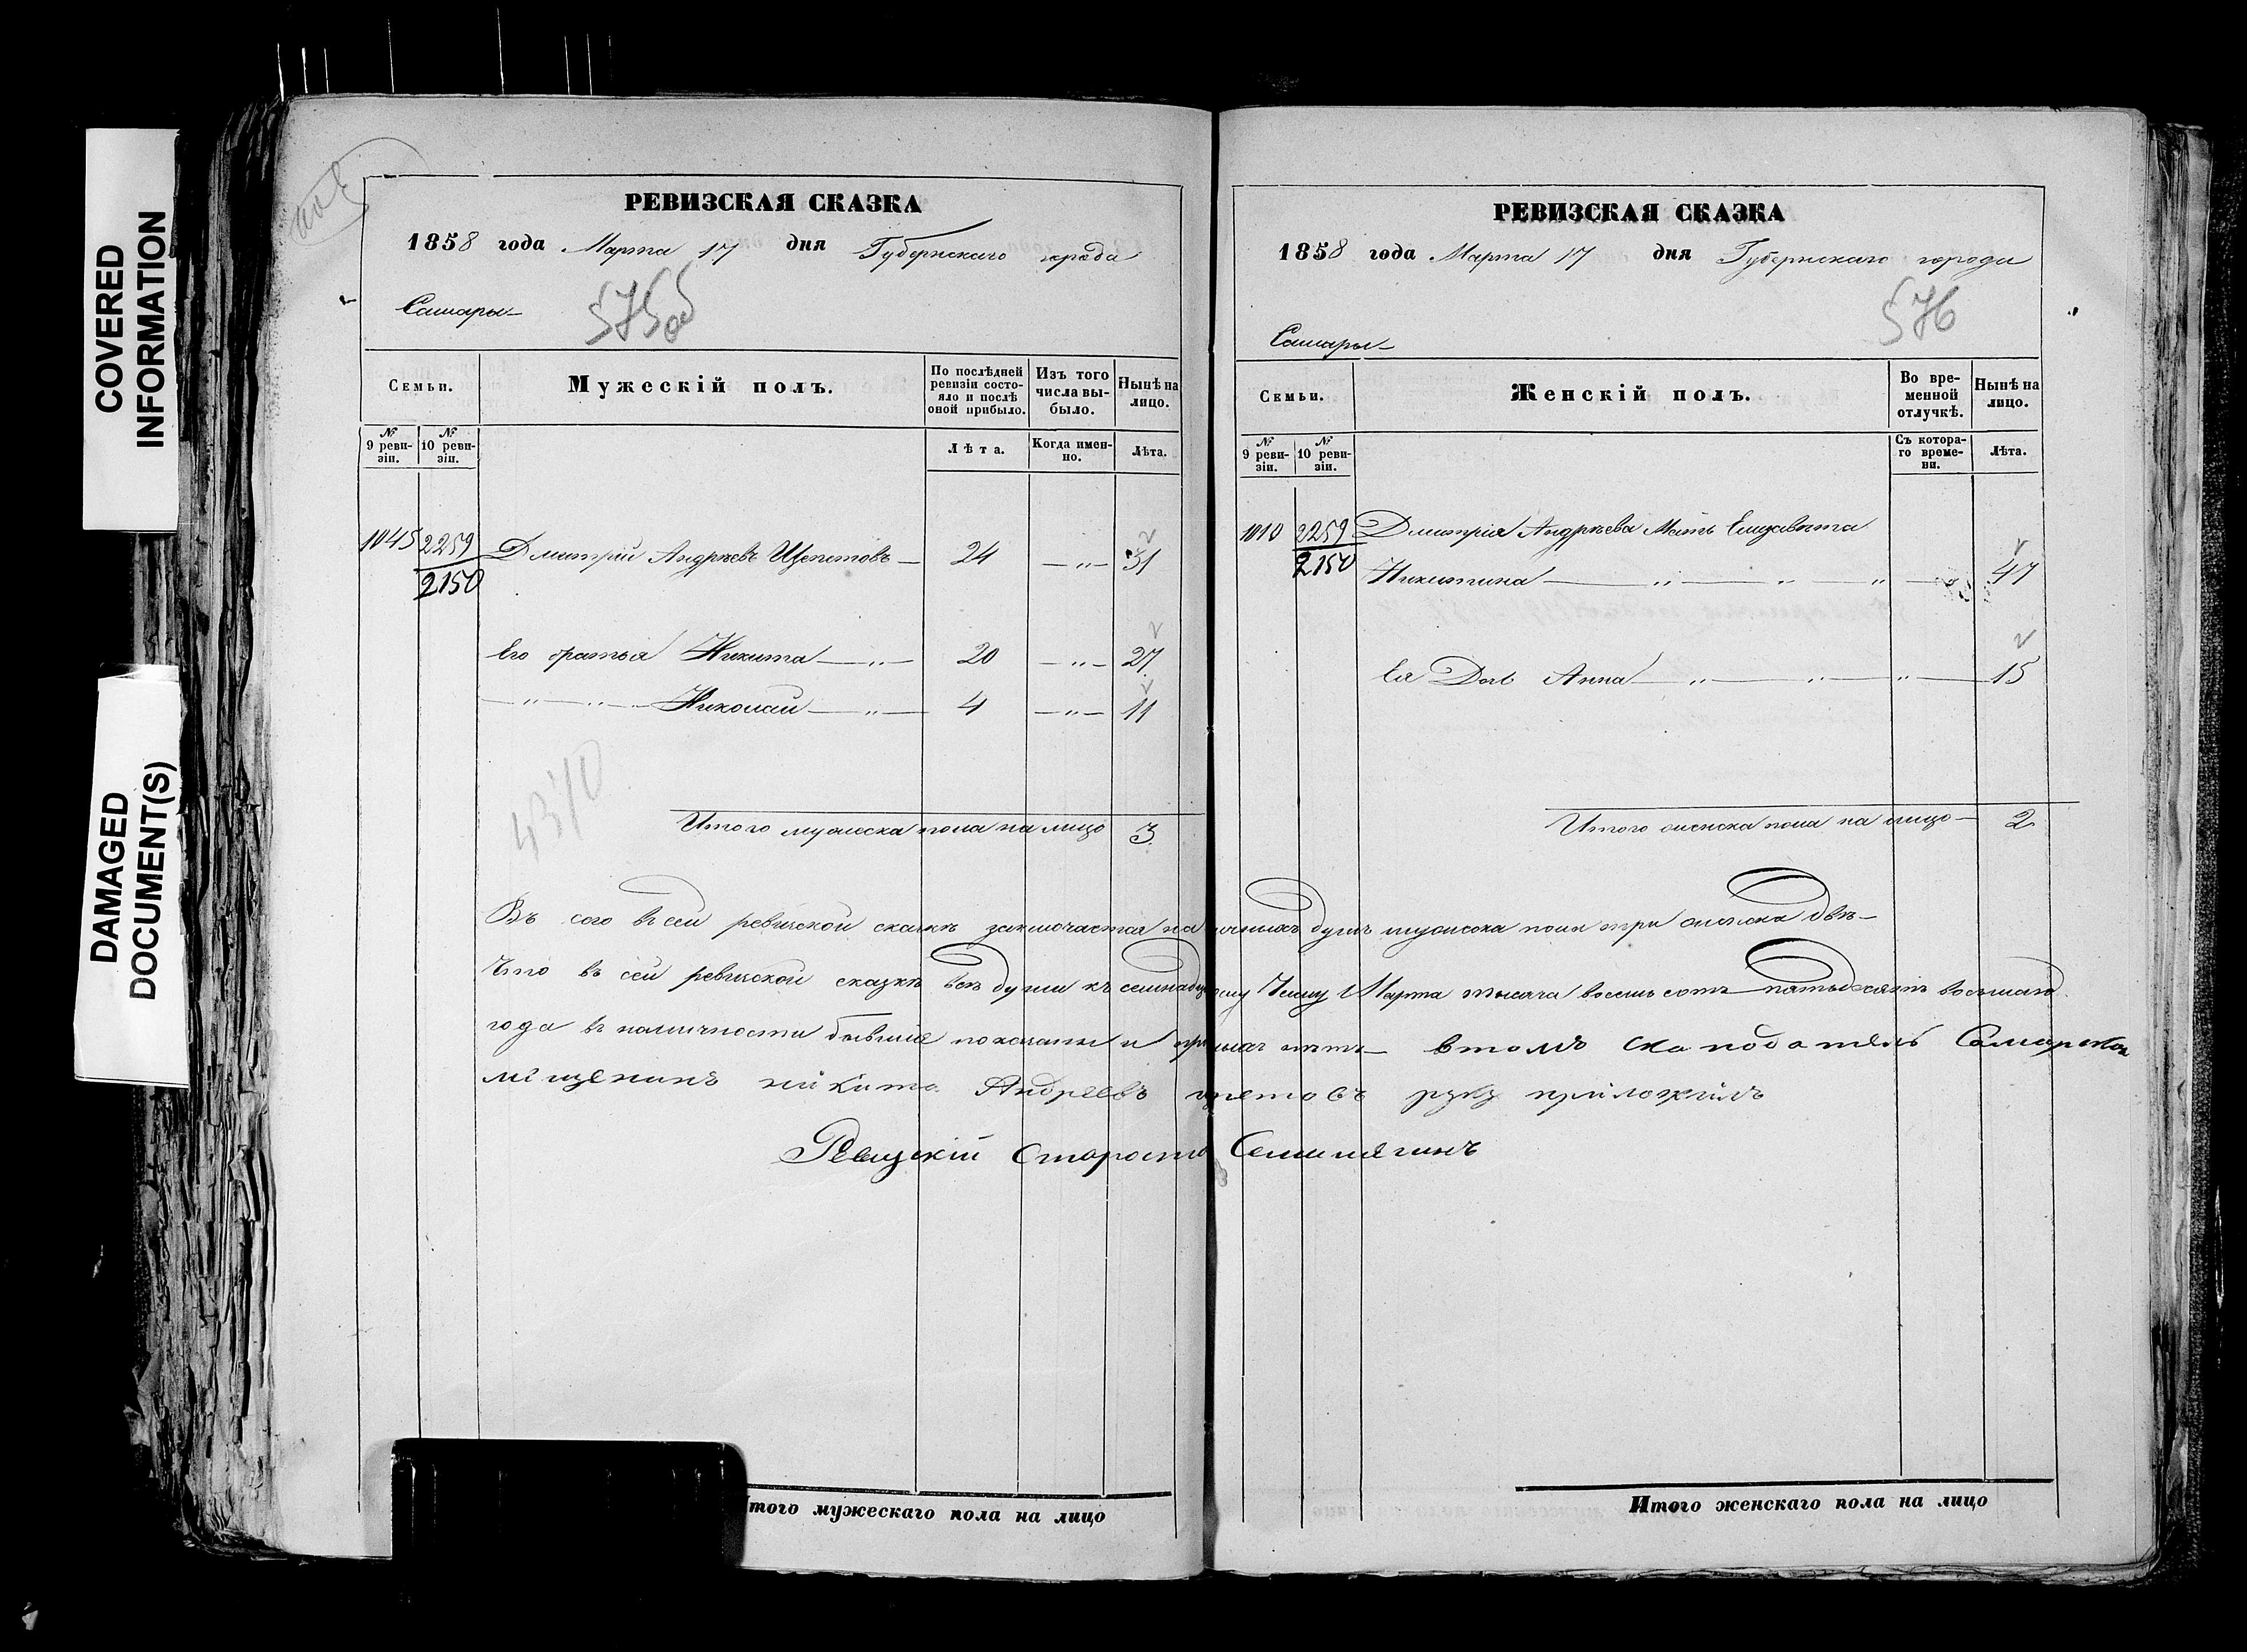 COVERED
INFORMATION
DAMAGED
DOCUMENT(S)
РЕВИЗСКАЯ СКАЗКА
1858 года Марта 17 дня Губернскаго города
Самары
575об
Семьи.
Мужескій полъ.
По послѣдней ревизіи состояло и послѣ оной прибыло.
Изъ того числа выбыло.
Нынѣ на лицо.
№ 9 ревизіи.
№ 10 ревизіи.
Лѣта.
Когда именно.
Лѣта.
1045 2259 Дмитрий Андреевъ Щепетовъ — 24 — " — 31
2150
Его братья Никита — " — 20 — " — 27
— " — " — Николай — " — 4 — " — 11
4370
Итого мужеска пола на лицо 3
РЕВИЗСКАЯ СКАЗКА
1858 года Марта 17 дня Губернскаго города
Самары
576
Семьи.
Женскій полъ.
Во временной отлучкѣ.
Нынѣ на лицо.
№ 9 ревизіи.
№ 10 ревизіи.
Съ котораго времени.
Лѣта.
1010 2259 Дмитрія Андрѣева Мать Елизавета
2150 Никитина — " — " — " — 47
Ея Дочь Анна — " — " — " — 15
Итого женска пола на лицо — 2
сего въ сей ревизской сказкѣ заключается наличныхъ душъ мужеска пола три женска двѣ —
Что въ сей ревизской сказкѣ всѣ души къ семнадцатому Числу Марта тысяча восемь сотъ пятьдесятъ восьмаго
года въ наличности бывшіе показаны и нѣтъ — втомъ Самарской
мещенинъ никита Андреевъ руку приложилъ
Староста
Итого мужескаго пола на лицо
Итого женскаго пола на лицо